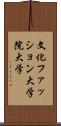 文化ファッ
ション大学
院大学